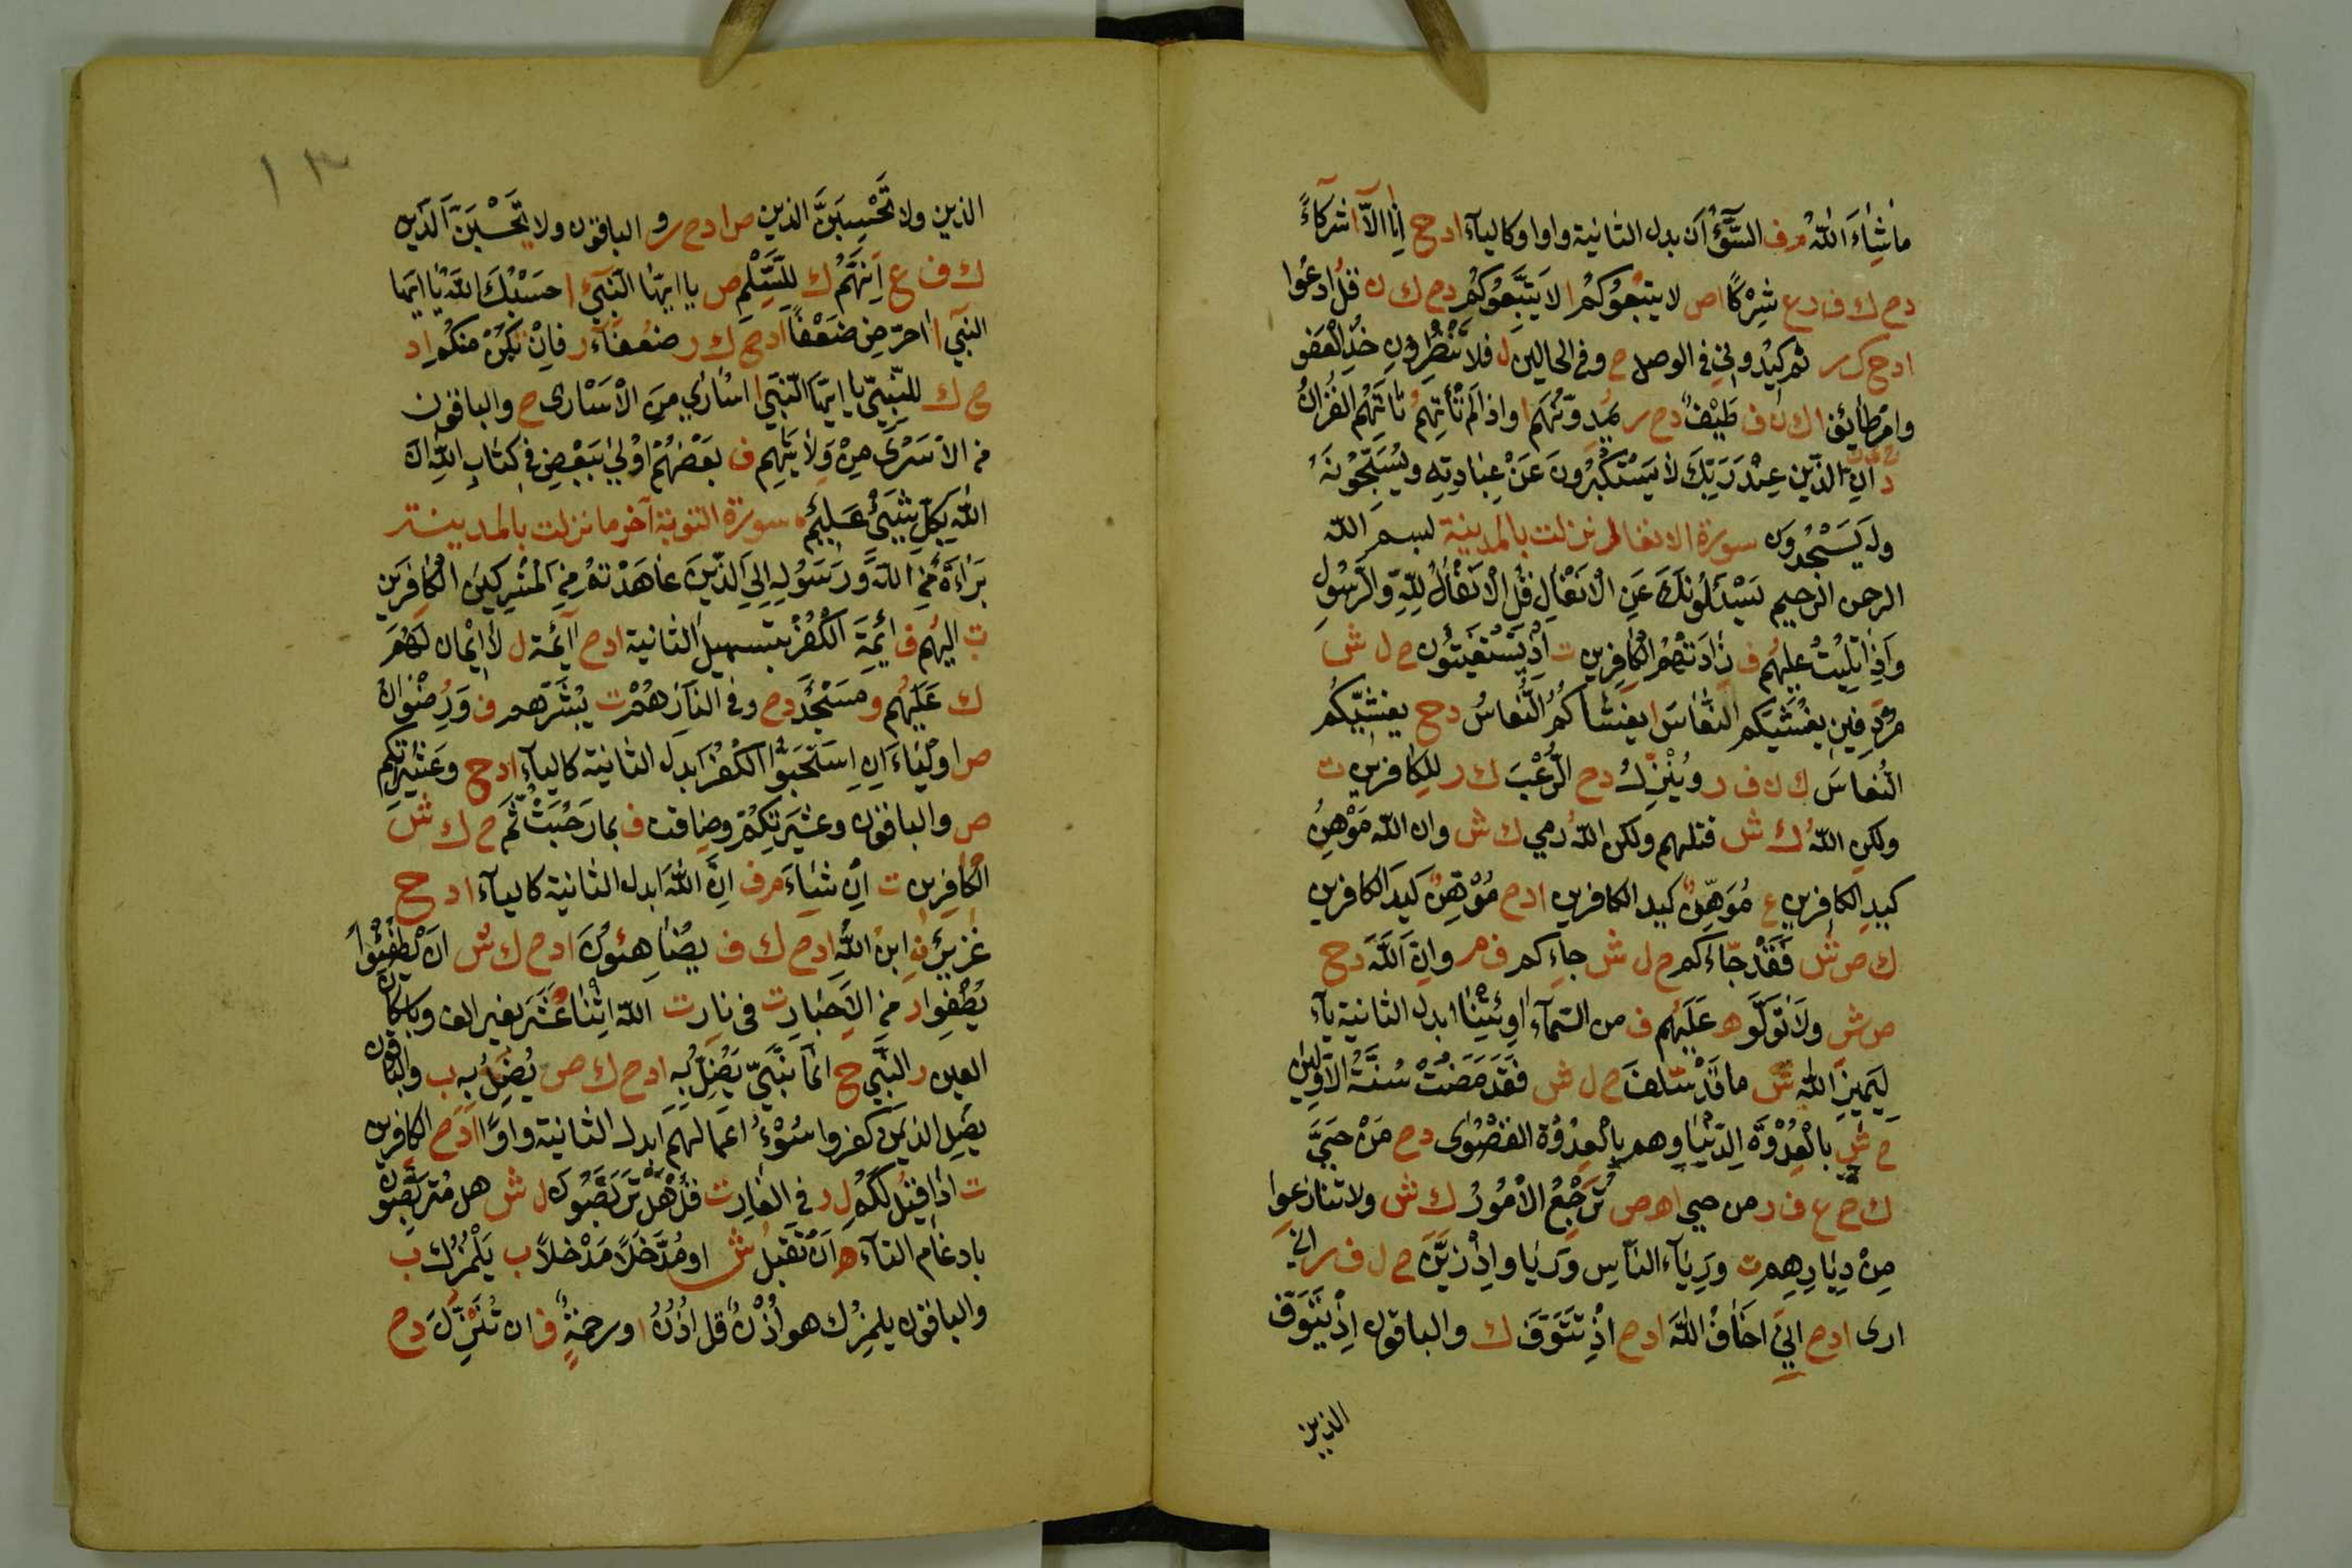 ما شَاءَ اللهُ م ف السُّوءُ اَن بدل الثانية واوا وكالياء ا د ح اَنَا اِلاَّ ا شركاءَ
د ح ك ف ر ع شِرْكًا ا ص لا يتبعوكم ا لا يَتَّبِعُوكُمْ د ح ك ن قُلُ ادعُوا
ا د ح ك ر ثم كيدُونِي في الوصل ح وفي الحالين ل فلا تُنْظِرُونِ خُذِ الْعَفْوَ
وامر طائف ا ك ن ف طَيْفٌ د ح ر يُمِدُّونَهُم ا واذا لم تَأْتِهِمْ تاتهم القُرَانُ
د اِنَّ الذين عِنْدَ رَبِّكَ لا يَسْتَكْبِرُونَ عَنْ عِبَادَتِهِ ويُسَبِّحُونَهُ
ولَهُ يَسْجُدُونَ سورة الانفال نزلت بالمدينة بسم الله
الرحمن الرحيم يَسْئَلُونَكَ عَنِ الْاَنْفَالِ قُلِ الْاَنْفَالُ لِلّهِ وَالرَّسُولِ
وَاِذَا تُلِيَتْ عليهُم ف زَادَتْهُمُ الكافِرِين ت اِذْ تَسْتَغِيثُون ح ل ش
مُرْدَفِين يُغْشِيكُم النُّعَاسَ ا يغشاكُمُ النُّعاسُ د ح يغشِّيكُم
النُعاسَ ك ن ف ر ويُنْزِلُ د ح الرُّعُبَ ك ر للكافرين ت
ولكنِ اللهُ ك ش قتلهم ولكن اللهُ رمي ك ش وان الله مُوْهِنُ
كيدِ الكافرين ع مُوَهِّنٌ كيد الكافرين ا د ح مُوْهِنٌ كيدَ الكافرين
ك ص ش فَقَدْ جَّاءَكم ح ل ش جاءكم ف م وانَّ اللهَ د ح
ص ش ولا تَوَلَّوْ ه عَلَيْهُم ف من السَّماءِ اوِ ئْتِنَا ابدل الثانية ياء
لِيَمِيزَ اللهُ ش ما قَدْ سَّلَفَ ح ل ش فَقَدْ مَضَتْ سُنَّةُ الاوَّلِين
ح ش بالعِدْوَةِ الدُّنْيَا وهم بالعِدْوَةِ القُصْوَى د ح مَنْ حَيَّ
ك ح ع ف ر من حيي ا ه ص تَرْجِعُ الْاُمُورُ ك ش ولا تنازعوا
مِنْ دِيَارِهِم ت وَرِيَاءَ النَّاسِ وَرِيَا واِذْ زَّيَّنَ ح ل ف ر اني
ارى ا د ح اِنِّيَ اخافُ اللهَ ا د ح اِذْ تَتَوَفَّى ك والباقون اِذْ يَتَوَفَّى
الذين
١٣
الذين ولا تَحْسِبَنَّ الذين ص ا د ح ر و الباقون ولا يَحْسَبَنَّ الَّذين
ك ف ع اَنَّهُمْ ك لِلسِّلْمِ ص يا ايها النَّبِيءُ ا حَسْبُكَ اللهُ يا ايها
النبي ا حرض ضُعْفًا ا د ح ك ر ضُعَفَاءَ ر فاِنْ تَكُنْ منكم ا د
ح ك للنَّبِيّ يا ايها النَّبِي ا اسارى مِنَ الاُسَارى ح والباقون
من الاَسْرَى مِنْ وِلَايَتِهِم ف بَعْضُهُمْ اَوْلى بِبَعْضٍ في كِتَابِ اللهِ اِنَّ
اللهَ بِكُلِّ شَيْءٍ عَلِيمٌ سورة التوبة آخر ما نزلت بالمدينة
بَرَاءَةٌ مِنَ اللهِ وَرَسُولِهِ اِلَى الَّذينَ عَاهَدْتُمْ مِنَ الْمُشْرِكِينَ الْكَافِرِينَ
ت اليهُم ف اَئِمَّةَ الْكُفْرِ بتسهيل الثانية ا د ح اَائِمَّة ل لا اِيْمَانَ لَهُمْ
ك عَلَيْهُم و مَسْجِدَ د ح وفي النار هُمْ ت يُبَشِّرُهم ف وَرُضْوَانٌ
ص اوْلِيَاءَ اِنِ اسْتَحَبُّوا الْكُفْرَ ابدل الثانية كالياء ا د ح وعَشِيرَاتكم
ص والباقون وعَشِيرَتكُمْ وضاقت ف بما رَحُبَتْ ثُّمَ ح ك ش
الكافِرِين ت اِنْ شَاءَ م ف اِنَّ اللهَ ابدل الثانية كالياء ا د ح
عُزَيْرٌ ن ابنُ اللهِ ا د ح ك ف يُضَاهِئُونَ ا د ح ك ش اَنْ يُطْفِئُوا
يُطْفِوا ر مِنَ الاَحْبَارِ ت في نار ت الله اثْنَا عَشَرَ بغير الف وباسكان
العين ر النَّسِي ح انما النَّسِيّ يَضِلُّ بِهِ ا د ح ك ص يُضِلُّ بِهِ ب والباقون
يُضَل الذين كفروا سُوْءُ اَعْمَالِهِم ابدل الثانية واوًا ا د ح الكافرين
ت اذا قيل لَكُمْ ل ر في الغار ت قُلْ هَلْ تَّرَبَّصُون ل ش هل متربصون
بادغام التاء ه اَنْ تُقْبَلَ ش او مُدَّخَلًا مَدْخلاً ب يَلْمُزُك ب
والباقون يلمِزُك هو اُذْنٌ قل اُذْنُ ا ورحمةٍ ف ان تُنْزَلَ د ح